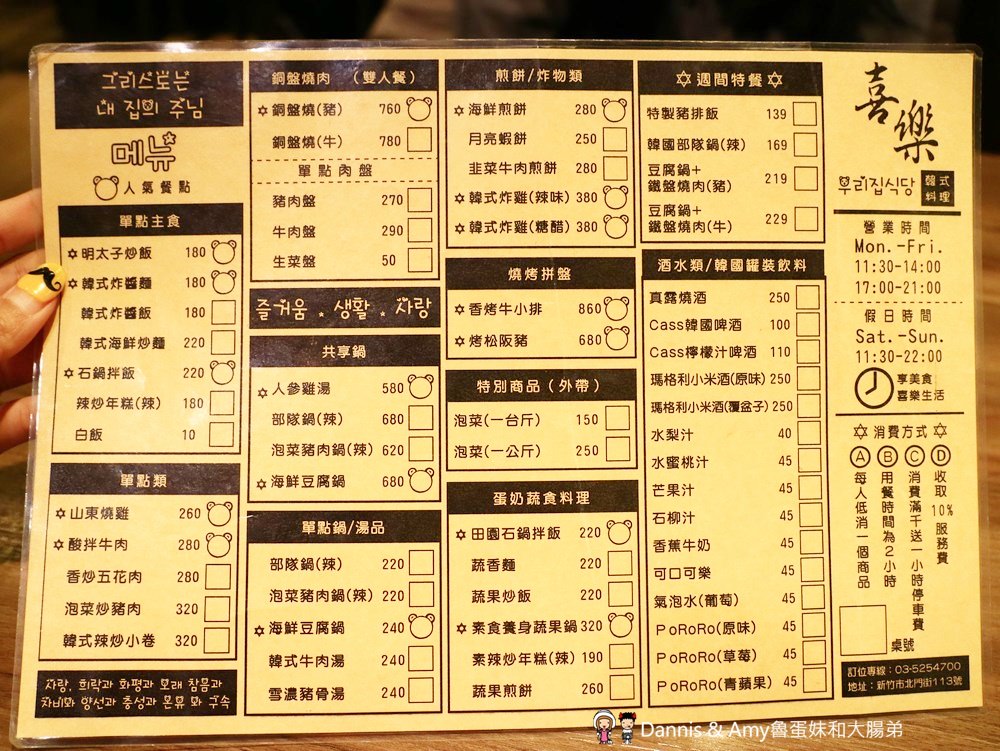 그리스도는
내 집의 주님
메뉴
人氣餐點
單點主食
✡明太子炒飯 180
✡韓式炸醬麵 180
韓式炸醬飯 180
韓式海鮮炒麵 220
✡石鍋拌飯 220
辣炒年糕(辣) 180
白飯 10
單點類
✡山東燒雞 260
✡酸拌牛肉 280
香炒五花肉 280
泡菜炒豬肉 320
韓式辣炒小卷 320
사랑, 희락과 화평과 오래 참음과
자비와 양선과 충성과 온유 와 구속
銅盤燒肉 (雙人餐)
✡銅盤燒(豬) 760
銅盤燒(牛) 780
單點肉盤
豬肉盤 270
牛肉盤 290
生菜盤 50
즐거움 . 생활 . 사랑
共享鍋
✡人參雞湯 580
部隊鍋(辣) 680
泡菜豬肉鍋(辣) 620
✡海鮮豆腐鍋 680
單點鍋/湯品
部隊鍋(辣) 220
泡菜豬肉鍋(辣) 220
✡海鮮豆腐鍋 240
韓式牛肉湯 240
雪濃豬骨湯 240
煎餅/炸物類
✡海鮮煎餅 280
月亮蝦餅 250
韭菜牛肉煎餅 280
✡韓式炸雞(辣味) 380
✡韓式炸雞(糖醋) 380
燒烤拼盤
✡香烤牛小排 860
✡烤松阪豬 680
特別商品(外帶)
泡菜(一台斤) 150
泡菜(一公斤) 250
蛋奶蔬食料理
✡田園石鍋拌飯 220
蔬香麵 220
蔬果炒飯 220
✡素食養身蔬果鍋 320
素辣炒年糕(辣) 190
蔬果煎餅 260
✡週間特餐✡
特製豬排飯 139
韓國部隊鍋(辣) 169
豆腐鍋+
鐵盤燒肉(豬) 219
豆腐鍋+
鐵盤燒肉(牛) 229
酒水類/韓國罐裝飲料
真露燒酒 250
Cass韓國啤酒 100
Cass檸檬汁啤酒 110
瑪格利小米酒(原味) 250
瑪格利小米酒(覆盆子) 250
水梨汁 40
水蜜桃汁 45
芒果汁 45
石柳汁 45
香蕉牛奶 45
可口可樂 45
氣泡水(葡萄) 45
PoRoRo(原味) 45
PoRoRo(草莓) 45
PoRoRo(青蘋果) 45
喜樂
우리집식당
韓式
料理
營業時間
Mon.-Fri.
11:30-14:00
17:00-21:00
假日時間
Sat.-Sun.
11:30-22:00
享美食
喜樂生活
✡消費方式✡
Ⓐ每人低消一個商品
Ⓑ用餐時間為2小時
Ⓒ消費滿千送一小時停車費
Ⓓ收取10%服務費
桌號
訂位專線：03-5254700
地址：新竹市北門街113號
Dannis & Amy魯蛋妹和大腸弟